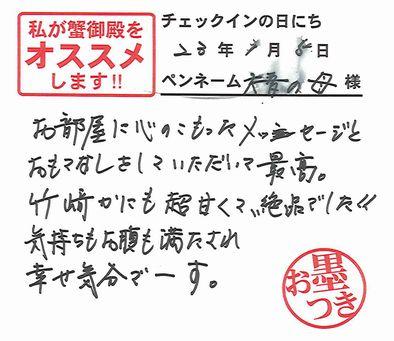 私が蟹御殿を
オススメ
します!!
チェックインの日にち
年 月 日
ペンネーム の母 様
お部屋に心のこもったメッセージと
おもてなしをしていただいて最高。
竹崎かにも超甘くて、絶品でした!!
気持ちもお腹も満たされ
幸せ気分でーす。
お墨つき